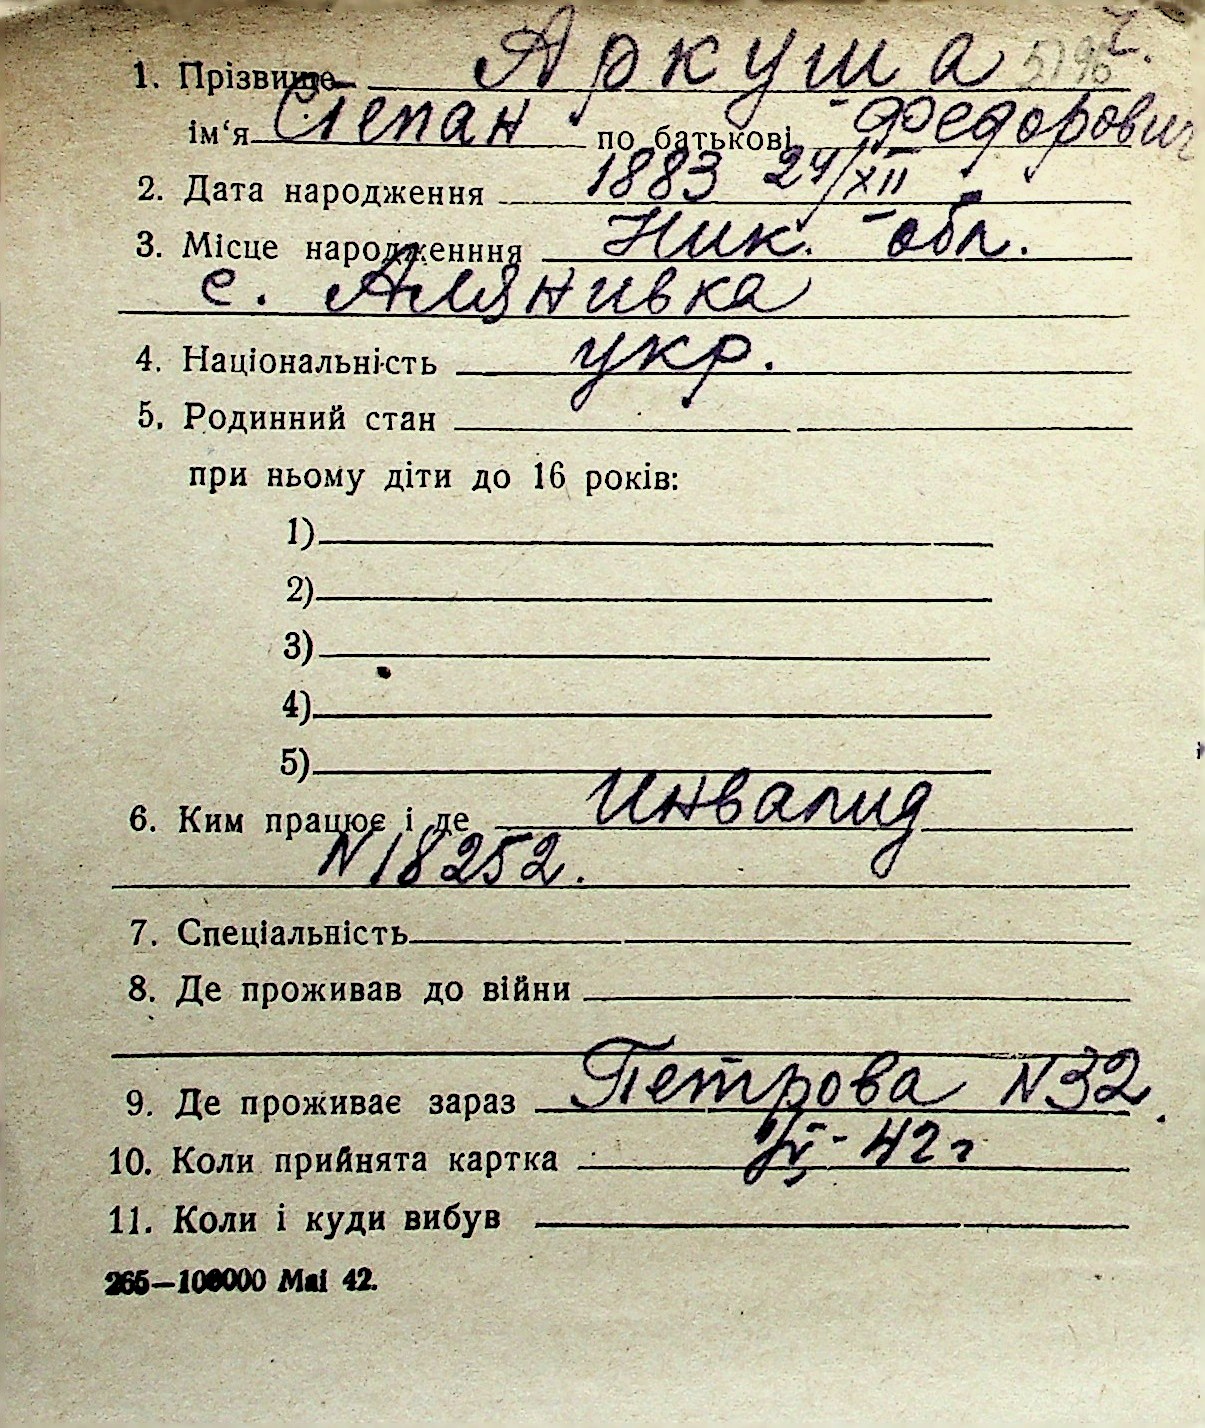 1. Прізвище Аркуша 5196 7.
ім‘я Степан по батькові Федорович
2. Дата народження 1883 24/XII
3. Місце народженння Ник. обл.
с. Алянивка
4. Національність укр.
5. Родинний стан
при ньому діти до 16 років:
1)
2)
3)
4)
5)
6. Ким працює і де Инвалид
N 18252.
7. Спеціальність
8. Де проживав до війни
9. Де проживає зараз Петрова N 32.
10. Коли прийнята картка - 42 г
11. Коли і куди вибув
265—100000 Mai 42.